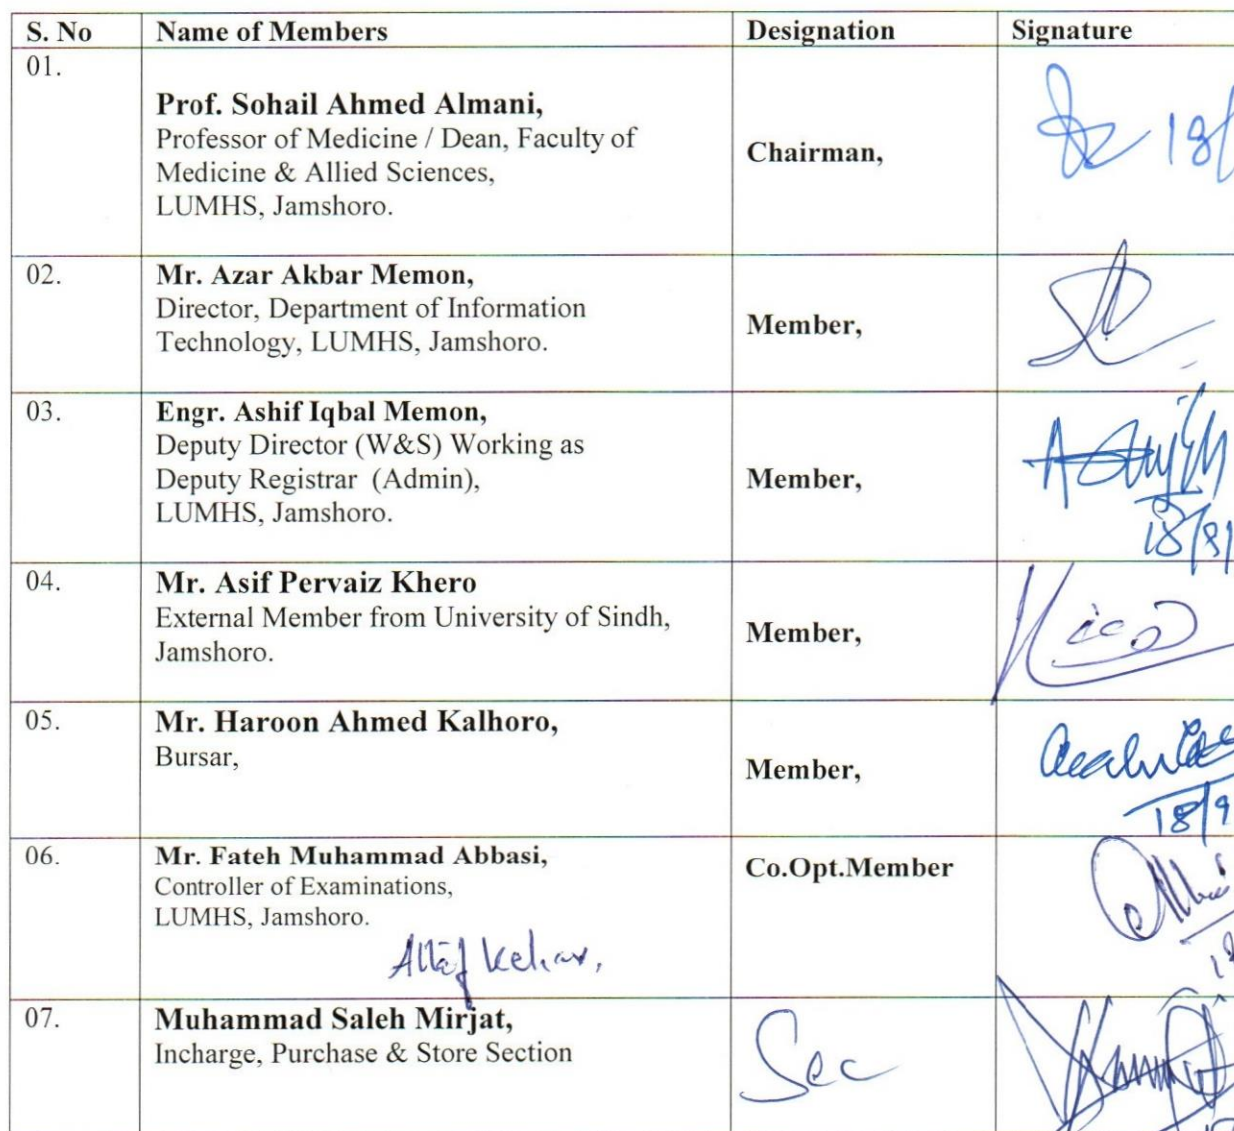 S. No Name of Members Designation Signature
01.
Prof. Sohail Ahmed Almani,
Professor of Medicine / Dean, Faculty of
Medicine & Allied Sciences,
LUMHS, Jamshoro.
Chairman,
02.
Mr. Azar Akbar Memon,
Director, Department of Information
Technology, LUMHS, Jamshoro.
Member,
03.
Engr. Ashif Iqbal Memon,
Deputy Director (W&S) Working as
Deputy Registrar (Admin),
LUMHS, Jamshoro.
Member,
18/9/
04.
Mr. Asif Pervaiz Khero
External Member from University of Sindh,
Jamshoro.
Member,
05.
Mr. Haroon Ahmed Kalhoro,
Bursar,
Member,
18/9
06.
Mr. Fateh Muhammad Abbasi,
Controller of Examinations,
LUMHS, Jamshoro.
Co.Opt.Member
07.
Muhammad Saleh Mirjat,
Incharge, Purchase & Store Section
Sec